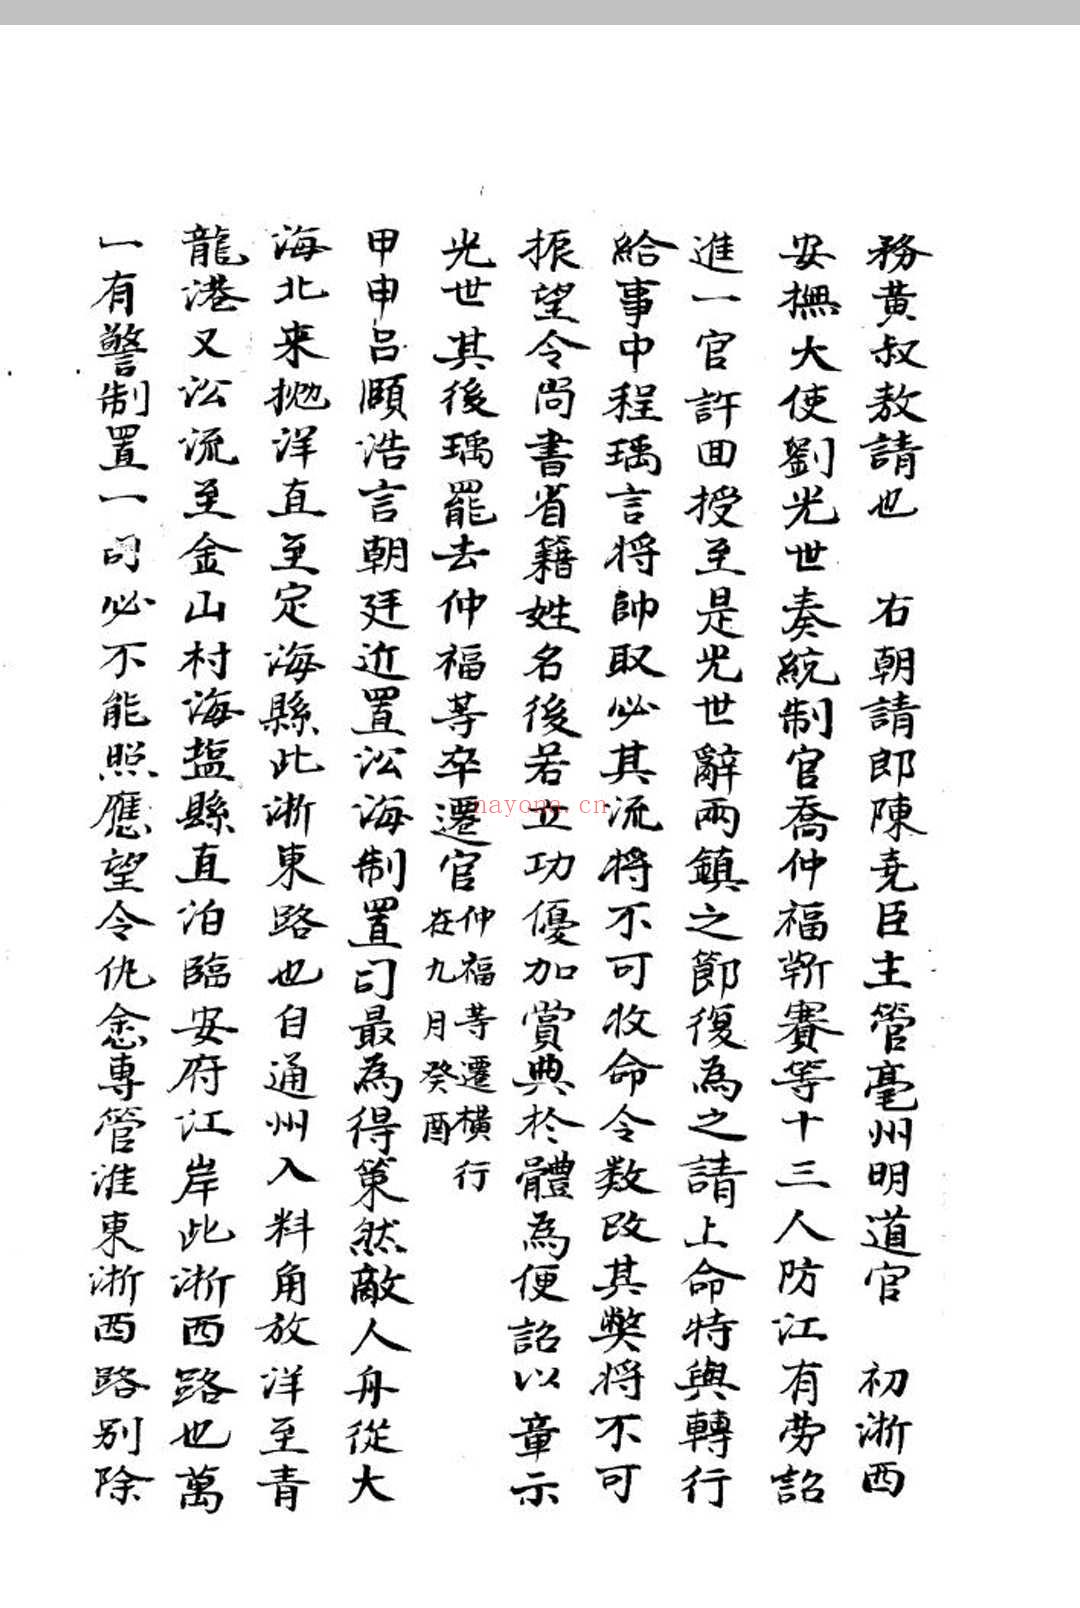 務黃叔敖請也　右朝請郎陳堯臣主管亳州明道宮　初浙西
安撫大使劉光世奏統制官喬仲福靳賽等十三人防江有劳詔
進一官許回授至是光世辭兩鎮之節復為之請上命特與轉行
給事中程瑀言将帥取必其流将不可收命令数改其弊将不可
振望令尚書省籍姓名後若立功優加賞典於體為便詔以章示
光世其後瑀罷去仲福等卒遷官仲福等遷横行
在九月癸酉
甲申呂頤浩言朝廷近置沿海制置司最為得策然敵人舟從大
海北来抛洋直至定海縣此浙東路也自通州入料角放洋至青
龍港又沿流至金山村海盐縣直泊臨安府江岸此浙西路也萬
一有警制置一司必不能照應望令仇悆専管淮東浙西路别除
nayona.cn